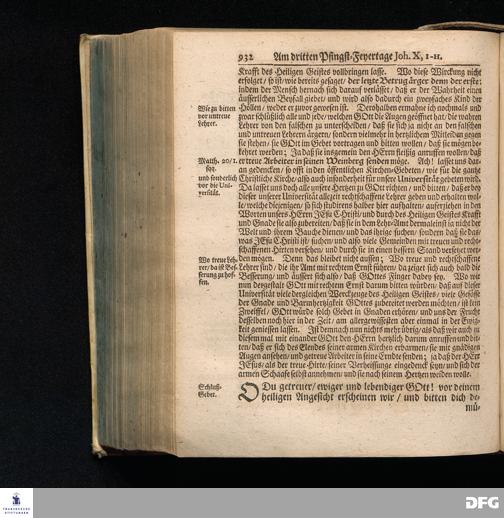 932 Am dritten Pfingst-Feyertage Joh. X, 1-11.
Krafft des Heiligen Geistes vollbringen lasse. Wo diese Würckung nicht
erfolget/ so ist/ wie bereits gesaget/ der letzte Betrug ärger denn der erste:
indem der Mensch hernach sich darauf verlässet/ daß er der Wahrheit einen
äusserlichen Beyfall giebet/ und wird also dadurch ein zweyfaches Kind der
Höllen/ weder er zuvor gewesen ist. Derohalben ermahne ich nochmals/ und
Wie zu bitten
vor untreue
Lehrer.
zwar schlüßlich alle und jede/ welchen GOtt die Augen geöffnet hat/ die wahren
Lehrer von den falschen zu unterscheiden/ daß sie sich ja nicht an den falschen
und untreuen Lehrern ärgern/ sondern vielmehr in hertzlichem Mitleiden gegen
sie stehen/ sie GOtt im Gebet vortragen und bitten wollen/ daß sie mögen be-
kehret werden; Ja daß sie insgemein den HErrn fleißig anruffen wollen/ daß
Matth. 20/1.
er treue Arbeiter in seinen Weinberg senden möge. Ach! lasset uns dar-
und sonderlich
vor die Uni-
versität.
an gedencken/ so offt in den öffentlichen Kirchen-Gebeten/ wie für die gantze
Christliche Kirche/ also auch insonderheit für unsere Universität gebeten wird.
Da lasset uns doch alle unsere Hertzen zu GOtt richten/ und bitten/ daß er bey
dieser unserer Universität allezeit rechtschaffene Lehrer geben und erhalten wol-
le/ welche diejenigen/ so sich studirens halber hier aufhalten/ auferziehen in den
Worten unsers HErrn JEsu Christi/ und durch des Heiligen Geistes Krafft
und Gnade sie also zubereiten/ daß sie in dem Lehr-Amt dermaleinst ja nicht der
Welt und ihrem Bauche dienen/ und das ihrige suchen/ sondern daß sie das/
was JEsu Christi ist/ suchen/ und also viele Gemeinden mit treuen und recht-
schaffenen Hirten versehen/ und durch sie in einen bessern Stand versetzet wer-
Wo treue Leh-
rer/ da ist Bes-
serung zu hof-
fen.
den mögen. Denn das bleibet nicht aussen; Wo treue und rechtschaffene
Lehrer sind/ die ihr Amt mit rechtem Ernst führen/ da zeiget sich auch bald die
Besserung/ und äussert sich also/ daß GOttes Finger dabey sey. Wo wir
nun dergestalt GOtt mit rechtem Ernst darum bitten würden/ daß aus dieser
Universität viele dergleichen Werckzeuge des Heiligen Geistes/ viele Gefässe
der Gnade und Barmhertzigkeit GOttes zubereitet werden möchten/ ist kein
Zweiffel/ GOtt würde solch Gebet in Gnaden erhören/ und uns der Frucht
desselben noch hier in der Zeit/ am allergewissesten aber einmal in der Ewig-
keit geniessen lassen. Ist demnach nun nichts mehr übrig/ als daß wir auch zu
diesem mal mit einander GOtt den HErrn hertzlich darum anruffen und bit-
ten/ daß er sich des Elendes seiner armen Kirchen erbarmen/ sie mit gnädigen
Augen ansehen/ und getreue Arbeiter in seine Erndte senden; ja daß der HErr
JEsus/ als der treue Hirte/ seiner Verheissunge eingedenck seyn/ und sich der
armen Schaafe selbst annehmen/ und sie nach seinem Hertzen weiden wolle.
Schluß-
Gebet.
O Du getreuer/ ewiger und lebendiger GOtt! vor deinem
heiligen Angesicht erscheinen wir/ und bitten dich de-
mü-
FRANCKESCHE
STIFTUNGEN
DFG